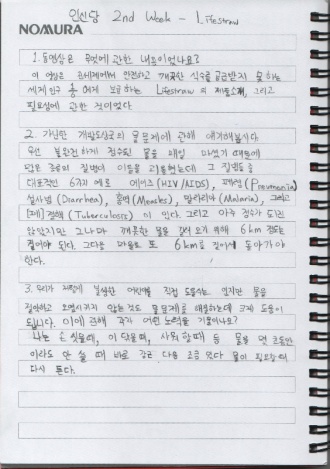 인신당 2nd Week - 1. Lifestraw
NOMURA
1. 동영상은 무엇에 관한 내용이었나요?
이 영상은 전세계에서 안전하고 깨끗한 식수를 공급받지 못 하는
세계인구 에게 보급하는 Lifestraw의 제품소개, 그리고
필요성에 관한 것이었다.
2. 가난한 개발도상국의 물문제에 관해 얘기해봅시다
우선 불완전하게 정수된 물을 매일 마셨기 때문에
많은 종류의 질병이 이들을 괴롭혔는데 그 질병들중
대표적인 6가지 예로 에이즈(HIV/AIDS), 폐렴(Pneumonia)
설사병(Diarrhea), 홍역(Measles), 말라리아(Malaria), 그리고
[폐]결핵(Tuberculosis)이 있다. 그리고 아주 정수가 되진
않았지만 그나마 깨끗한 물을 길어 오기 위해 6km 정도는
걸어야 된다. 그다음 마을로 또 6km를 걸어서 돌아가야
한다.
3. 우리가 저렇게 불쌍한 어린이를 직접 도울수는 없지만 물을
절약하고 오염시키지 않는것도 물문제를 해결하는데 크게 도움이
됩니다. 이에 관해 각자 어떤 노력을 기울이나요?
나는 손 씻을때, 이 닦을때, 샤워 할때 등 물을 몇 초동안
이라도 안 쓸 때 바로 잠근 다음 조금 있다 물이 필요할 때
다시 튼다.